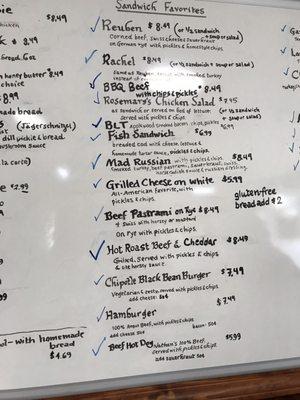 Sandwich Favorites
Reuben $8.49 (or 1/2 sandwich
Corned beef, Swiss cheese, Sauerkraut + soup or salad)
on German rye with pickles & homestyle chips,
Rachel $8.49 (or 1/2 sandwich
Same as Reuben with smoked turkey + soup or salad)
instead
BBQ Beef $6.49
with chips & pickles
Rosemary's Chicken Salad $7.95
as sandwich or served on bed of lettuce. (or 1/2 sandwich
served with pickles & chips + soup or salad)
BLT Applewood smoked bacon chips, pickles $6.99
Fish Sandwich $6.99
breaded cod with cheese, lettuce &
homemade tartar sauce, pickles & chips.
Mad Russian with pickles & chips $8.49
Smoked turkey, beef pastrami, sauerkraut, swiss,
horseradish sauce & russian dressing.
Grilled Cheese on white $5.49
All-American favorite, with
pickles & chips.
glutenfree
bread add $2
Beef Pastrami on Rye $8.49
& Swiss with horsey or mustard
on Rye with pickles & chips.
Hot Roast Beef & Cheddar $8.49
Grilled. Served with pickles & chips
& our horsey sauce.
Chipotle Black Bean Burger $7.49
Vegetarian & zesty. served with pickles & chips
add cheese 50¢
Hamburger $7.49
100% Angus Beef, with pickles & chips
add cheese 50¢
Beef Hot Dog Nathan's 100% Beef. $5.99
Served with pickles & chips
add sauerkraut 50¢
$8.49
chicken
$8.49
honey butter 8.49
$8.99
made bread
(Jägerschnitzel)
dill pickle & bread.
mushroom sauce
a la carte)
$2.99
with homemade
bread
$4.69